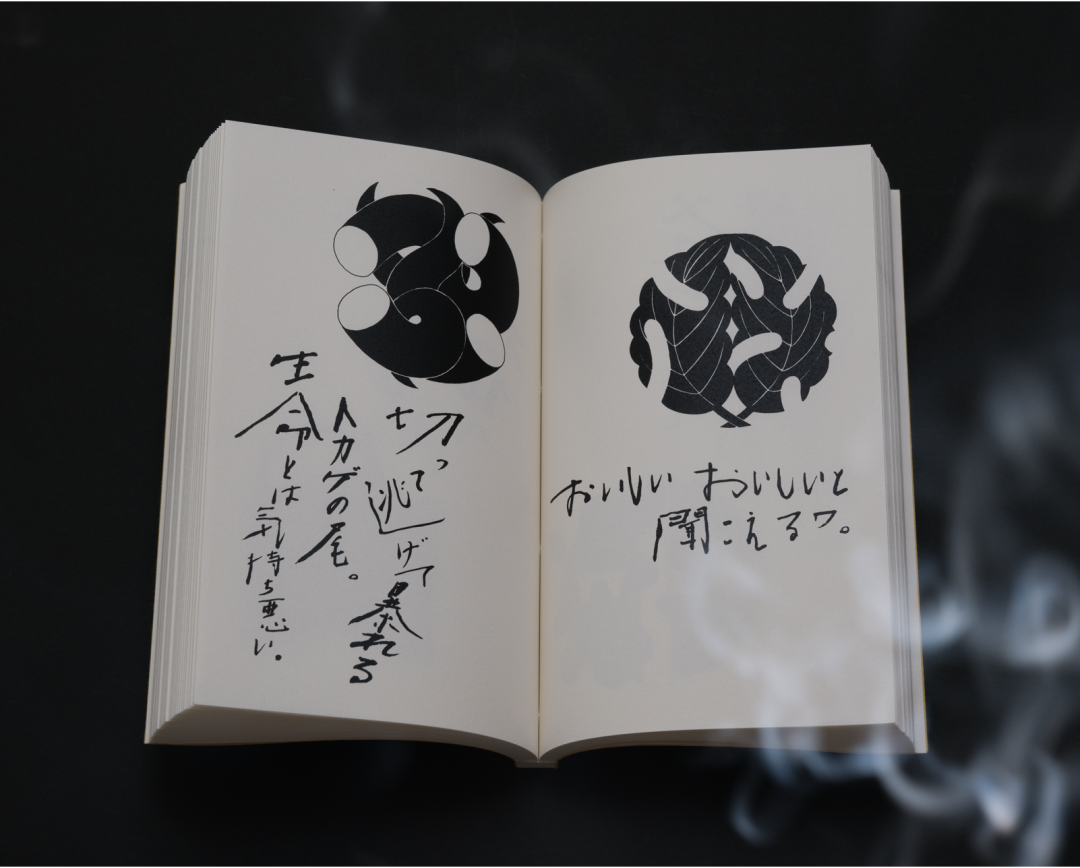 切って逃げて暴れる
トカゲの尾。
生命とは気持ち悪い。
おいしい おいしいと
聞こえるワ。